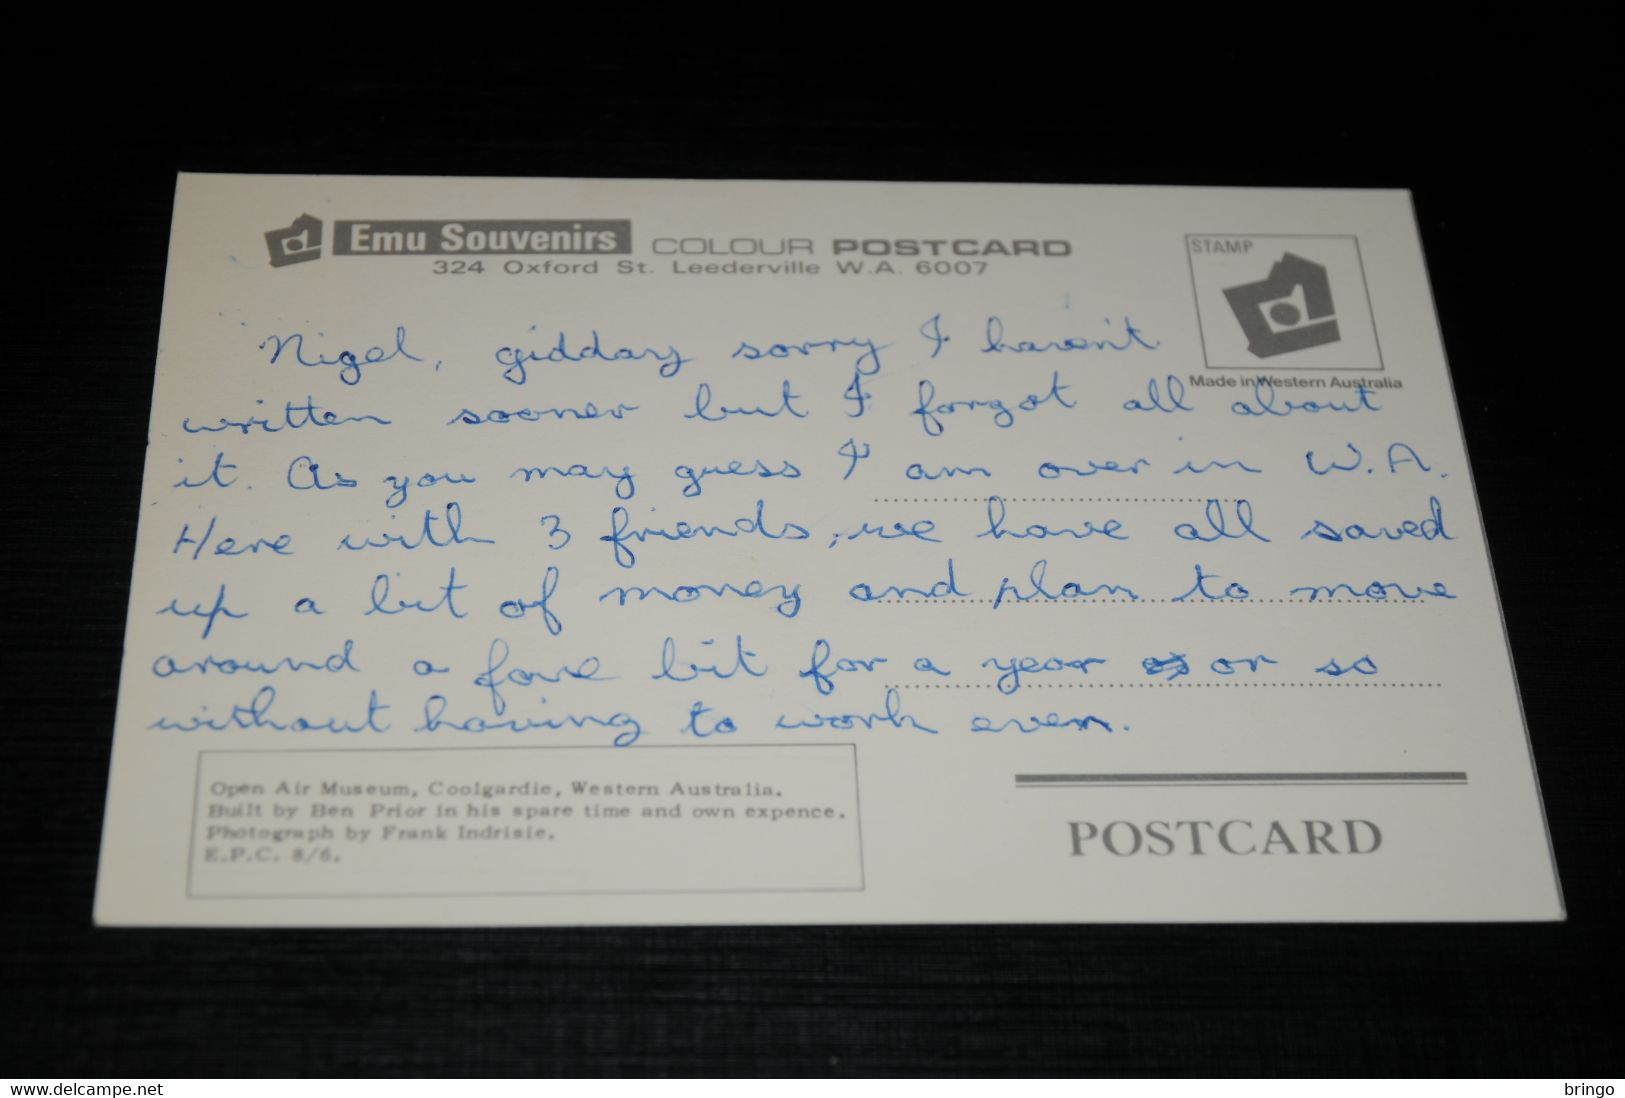 Emu Souvenirs COLOUR POSTCARD
324 Oxford St. Leederville W.A. 6007
STAMP
Made in Western Australia
Nigel, gidday sorry I haven't
written sooner but I forgot all about
it. As you may guess I am over in W.A.
Here with 3 friends, we have all saved
up a bit of money and plan to move
around a fare bit for a year or so
without having to work even.
Open Air Museum, Coolgardie, Western Australia.
Built by Ben Prior in his spare time and own expence.
Photograph by Frank Indrisie.
E.P.C. 8/6.
POSTCARD
www.delcampe.net
bringo